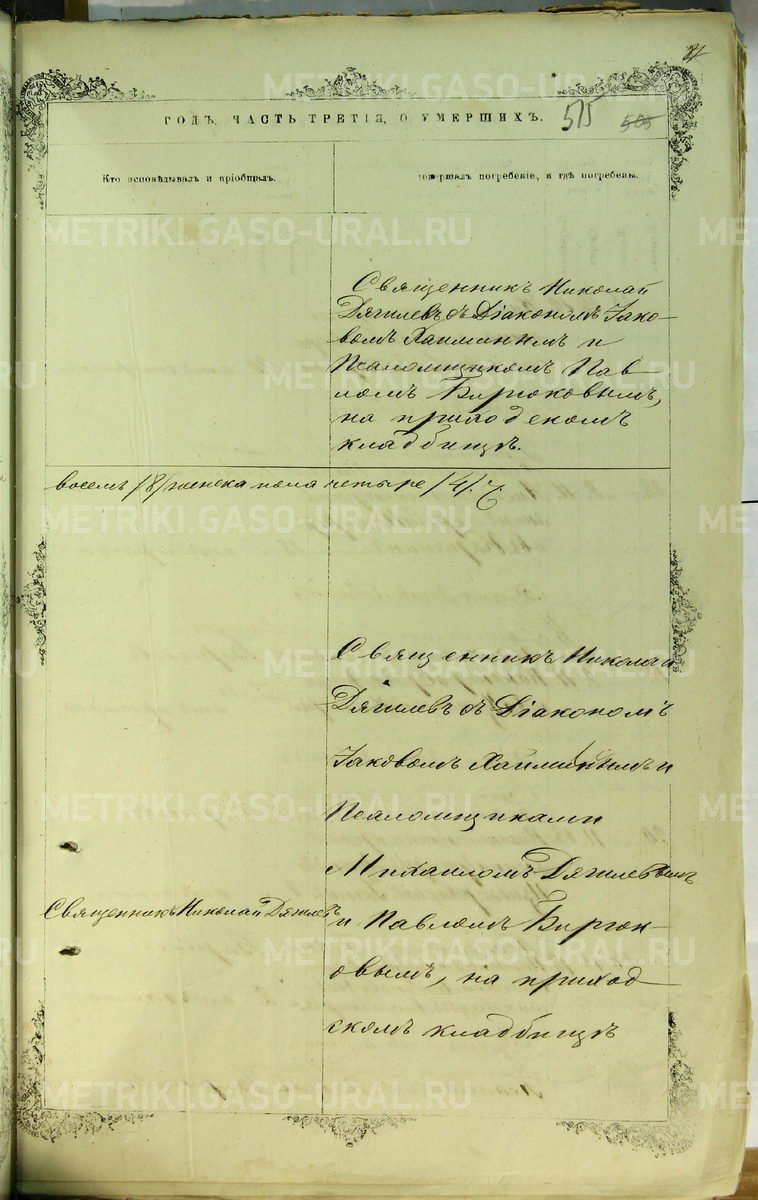 ГОДЪ, ЧАСТЬ ТРЕТІЯ, О УМЕРШИХЪ.
515
505
Кто исповѣдывалъ и пріобщалъ.
совершалъ погребеніе, и гдѣ погребены.
METRIKI.GASO-URAL.RU
Священникъ Николай
Дягилевъ съ Діакономъ Іако-
вомъ Хаилинымъ и
Псаломщикомъ Пав-
ломъ Бирюковымъ,
на приходскомъ
кладбищѣ.
восемь /8/ женска пола четыре /4/.
Священникъ Николай
Дягилевъ съ Діакономъ
Іаковомъ Хаилинымъ и
Псаломщиками
Михаиломъ Дягилевымъ
Священникъ Николай Дягилевъ
и Павломъ Бирюк-
овымъ, на приход
скомъ кладбищѣ